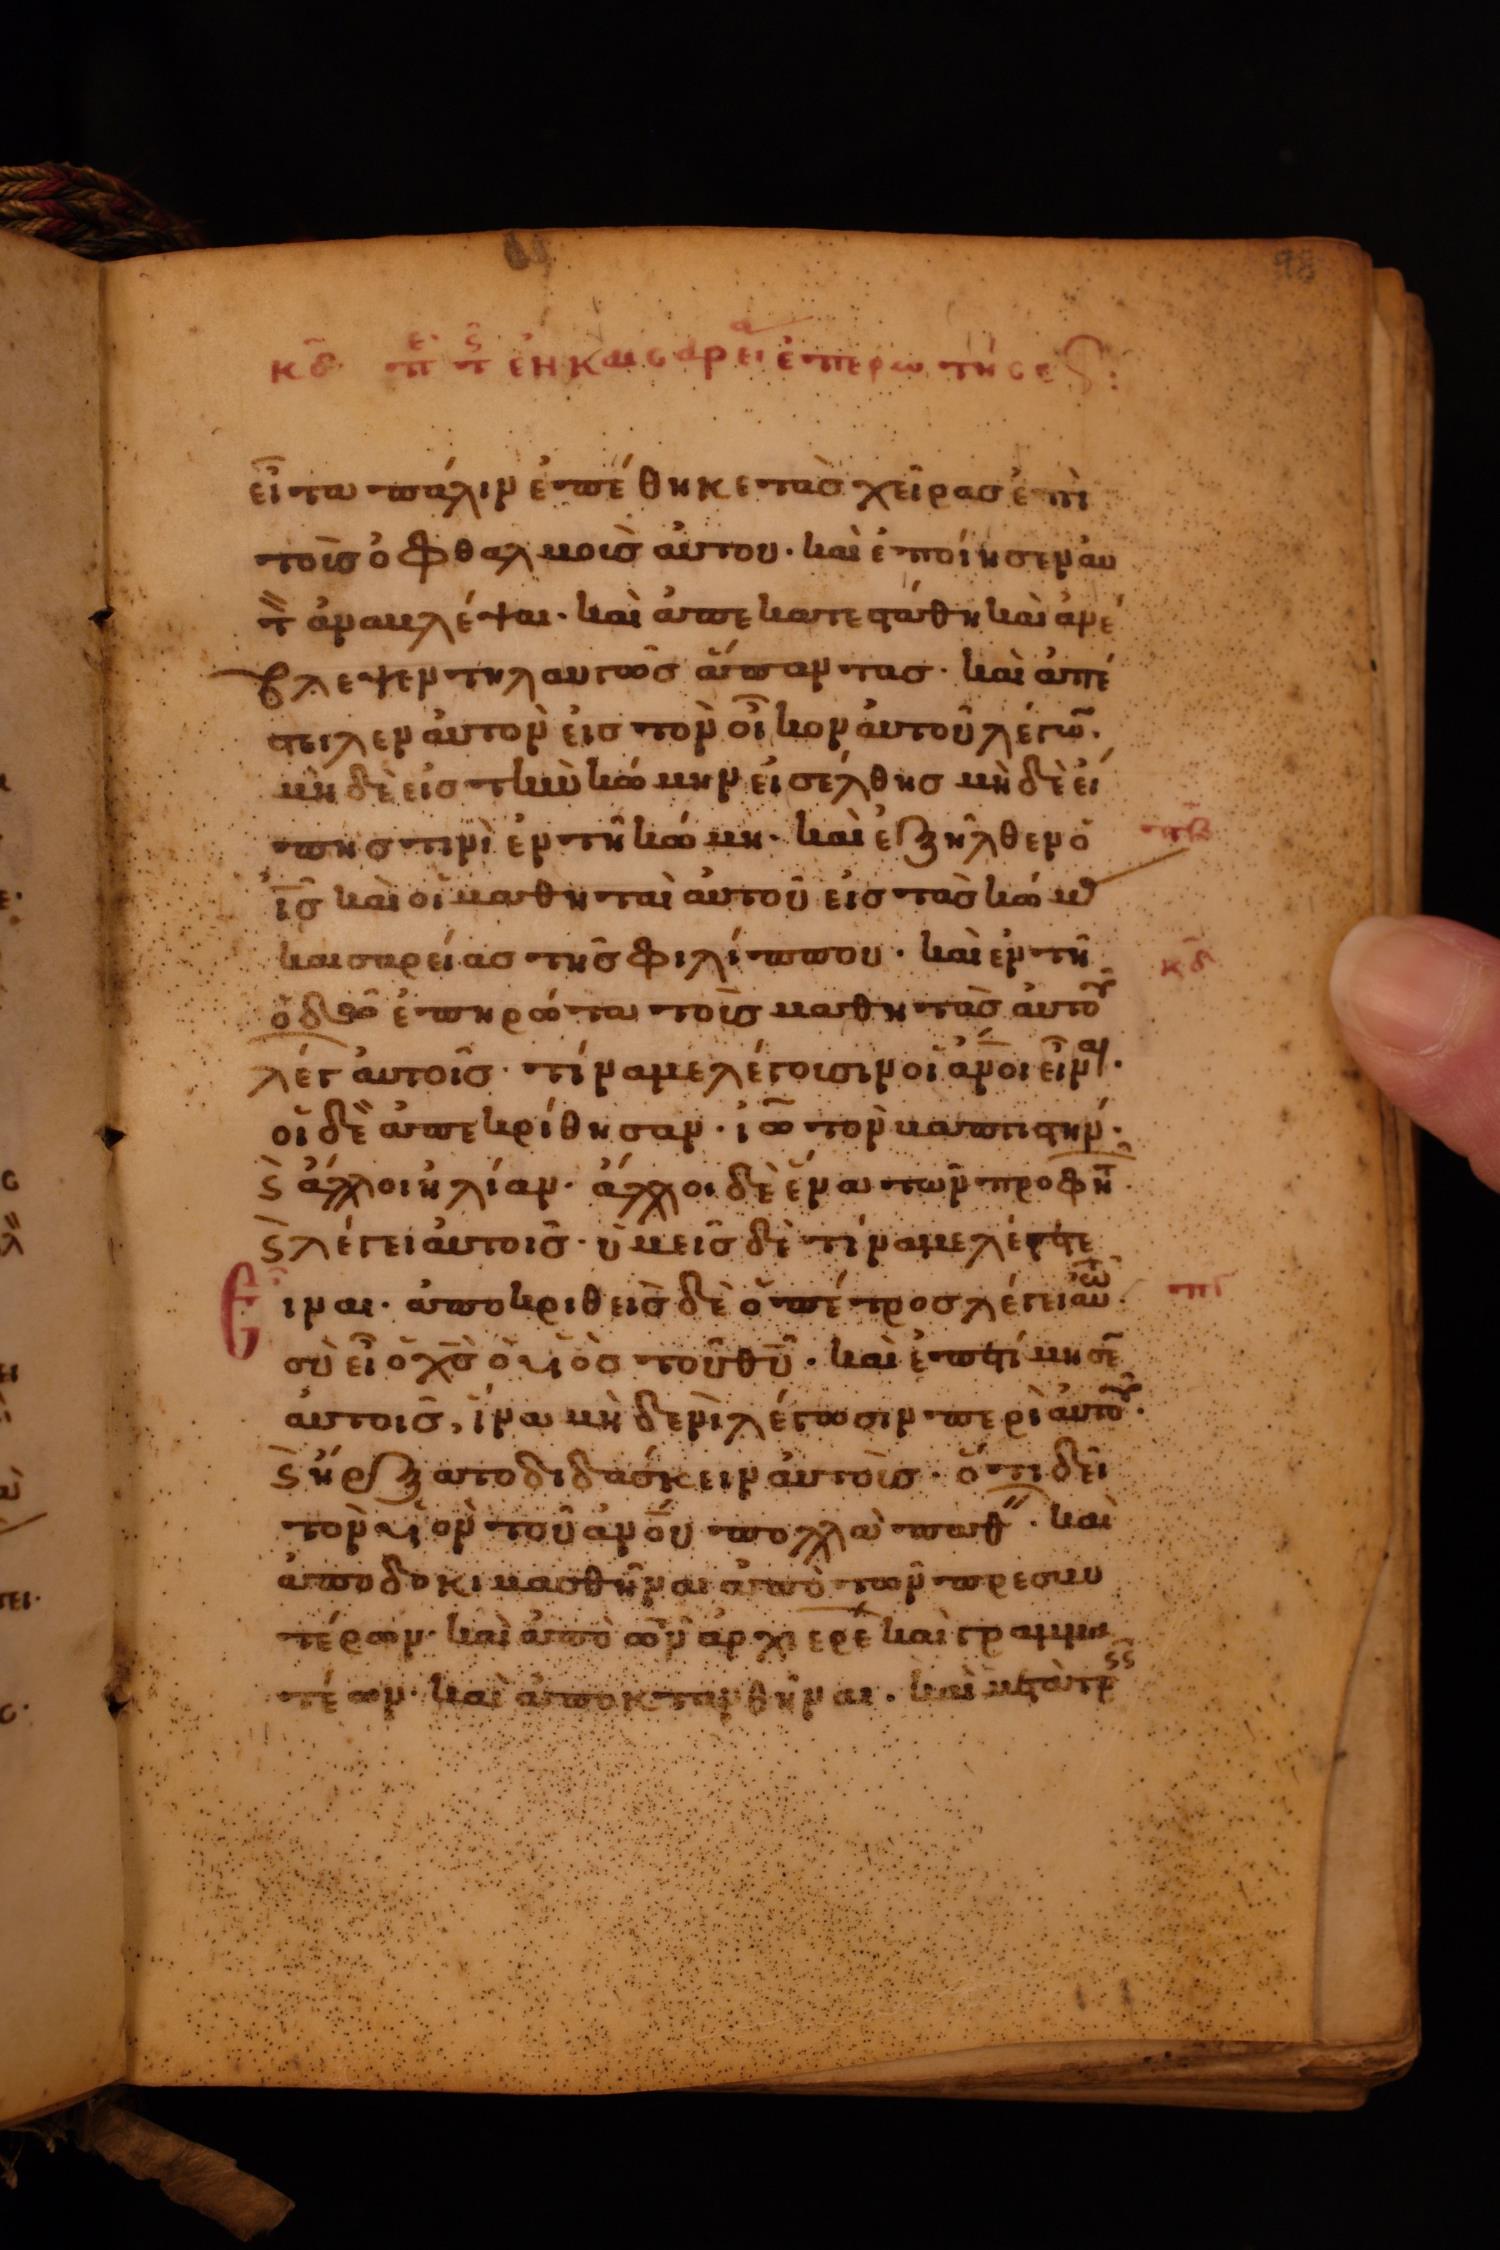 98
κδ περι της εν καισαρεια επερωτησεως:
εἶτα πάλιν ἐπέθηκε τὰς χεῖρας ἐπὶ
τοὺς ὀφθαλμοὺς αὐτου· καὶ ἐποίησεν αὐ
τὸν ἀναβλέψαι· καὶ ἀπεκατεστάθη καὶ ἀνέ
βλεψεν τηλαυγῶς ἅπαντας· καὶ ἀπέ
στειλεν αὐτὸν εἰς τὸν οἶκον αὐτοῦ λέγων·
μὴ δὲ εἰς τὴν κώμην εἰσέλθης μὴ δὲ εἴ
πης τινὶ ἐν τῆ κώμη· καὶ ἐξῆλθεν ὁ
πβ
ις καὶ οἱ μαθηταὶ αὐτοῦ εἰς τὰς κώμας
καισαρείας τῆς φιλίππου· καὶ ἐν τῆ
κδ
ὁδῶ ἐπηρώτα τοὺς μαθητὰς αὐτοῦ
λέγων αὐτοῖς· τίνα με λέγουσιν οἱ ἄνοι εἶναι·
οἱ δὲ ἀπεκρίθησαν· ἰω τὸν βαπτιστήν·
ϛ ἄλλοι ἠλίαν· ἄλλοι δὲ ἕνα τῶν προφητῶν·
ϛ λέγει αὐτοῖς· ὑμεῖς δὲ τίνα με λέγετε
Εἶναι· ἀποκριθεὶς δὲ ὁ πέτρος λέγει αὐτῶ·
πγ
σὺ εἶ ὁ χς ὁ υἱὸς τοῦ θυ· καὶ ἐπετίμησεν
αὐτοῖς, ἵνα μὴ δενὶ λέγωσιν περὶ αὐτοῦ·
ϛ ἤρξατο διδάσκειν αὐτοὺς· ὅτι δεῖ
τὸν υἱὸν τοῦ ἀνου πολλὰ παθεῖν· καὶ
ἀποδοκιμασθῆναι ἀπὸ τῶν πρεσβυ
τέρων· καὶ ἀπὸ τῶν ἀρχιερέων καὶ γραμμα
τέων· καὶ ἀποκτανθῆναι· καὶ μετὰ τρεῖς